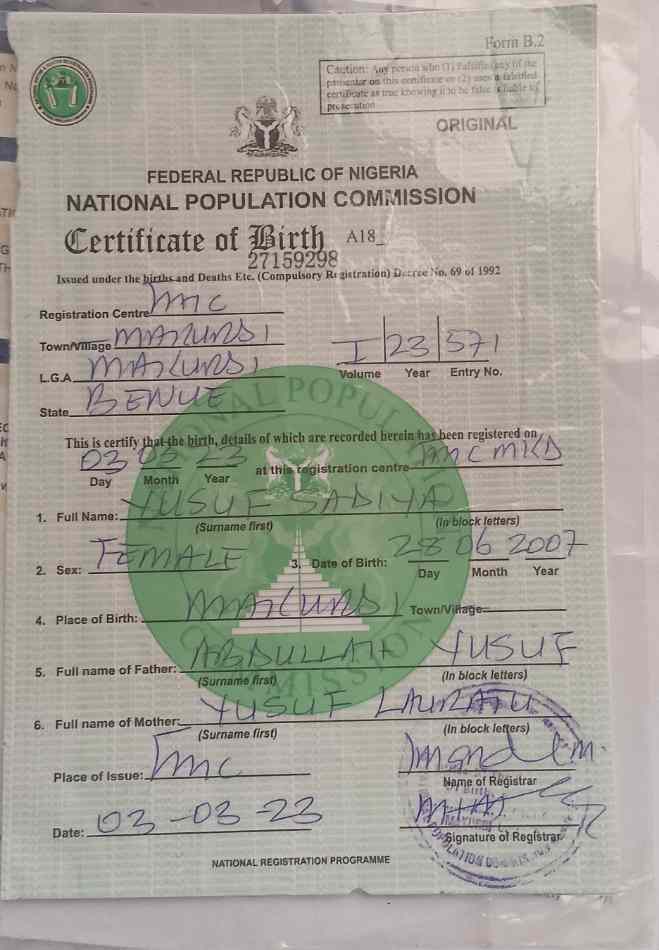 Form B.2
Caution: Any person who (1) Falsifies any of the
on this certificate or (2) uses a falsified
certificate as true knowing it to be false is liable to
prosecution
ORIGINAL
FEDERAL REPUBLIC OF NIGERIA
NATIONAL POPULATION COMMISSION
Certificate of Birth A18_
27159298
Issued under the births and Deaths Etc. (Compulsory Registration) Decree No. 69 of 1992
Registration Centre MC
Town/Village MAKURDI
I 23 571
L.G.A MAKURDI
Volume Year Entry No.
State BENUE
This is certify that the birth, details of which are recorded herein has been registered on
03 03 23 at this registration centre MC MKD
Day Month Year
1. Full Name: YUSUF SADIYA
(Surname first) (In block letters)
2. Sex: FEMALE 3. Date of Birth: 28 06 2007
Day Month Year
4. Place of Birth: MAKURDI Town/Village
5. Full name of Father: ABDULLAH YUSUF
(Surname first) (In block letters)
6. Full name of Mother: YUSUF LAURATU
(Surname first) (In block letters)
Place of Issue: MC
Name of Registrar
Date: 03-03-23
Signature of Registrar
NATIONAL REGISTRATION PROGRAMME